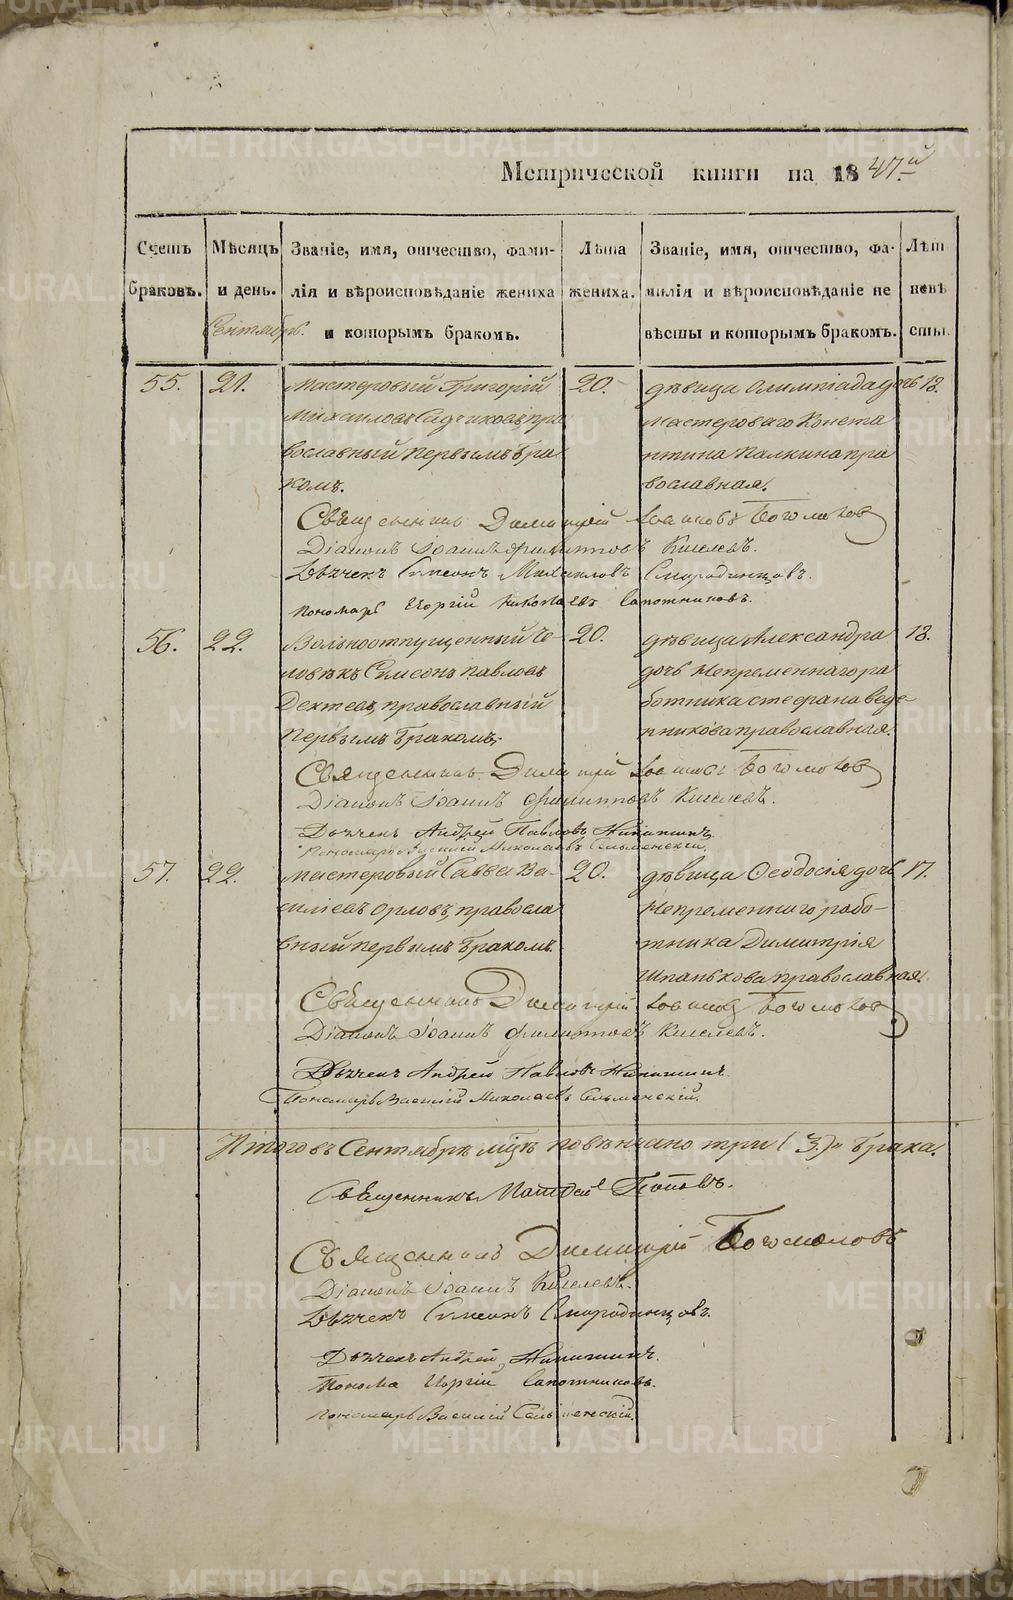 Метрической книги на 1847.й
Счетъ браковъ.
Мѣсяцъ и день.
Званіе, имя, отчество, фами-
лія и вѣроисповѣданіе жениха
и которымъ бракомъ.
Лѣта
жениха.
Званіе, имя, отчество, фа-
милія и вѣроисповѣданіе не
вѣсты и которымъ бракомъ.
Лѣт
невѣ
сты.
Сентябрь.
55. 21.
Мастеровый Григорій
Михаиловъ Садчиковъ пра
вославный первымъ бра
комъ.
20.
дѣвица Олимпіада дочь
мастероваго Конста
нтина Палкина пра
вославная.
18.
Священникъ Димитрій Богомолов
Діаконъ Іоаннъ Филипповъ Киселевъ.
Дьячекъ Симеонъ Михаиловъ Смородинцовъ.
Пономарь Георгій Николаевъ Сапожниковъ.
56. 22.
Вольноотпущенный че-
ловѣкъ Симеонъ Павловъ
Дехтевъ, православный
первымъ бракомъ.
20.
дѣвица Александра
дочь непременнаго ра
ботника Стефана Веде
рникова православная.
18.
Священникъ Димитрій Богомолов
Діаконъ Іоаннъ Филипповъ Киселевъ.
Дьячекъ Андрей Павловъ Никитинъ
Пономарь Василій Николаевъ Сельменскій.
57. 22.
Мастеровый Савва Ва-
силіевъ Орловъ, правосла
вный первымъ бракомъ.
20.
дѣвица Феодосія дочь
непременнаго рабо-
тника Димитрія
Шпанькова православная.
17.
Священникъ Димитрій Богомолов
Діаконъ Іоаннъ Филипповъ Киселевъ.
Дьячекъ Андрей Павловъ Никитинъ.
Пономарь Василій Николаевъ Сельменскій.
Итого въ Сентябрѣ мцѣ повѣнчано три (3.) брака.
Священникъ Матфей Поповъ.
Священникъ Димитрій Богомоловъ
Діаконъ Іоаннъ Киселевъ.
Дьячекъ Симеонъ Смородинцовъ.
Дьячекъ Андрей Никитинъ.
Понома Георгій Сапожниковъ.
Пономарь Василій Сельменскій.
METRIKI.GASO-URAL.RU